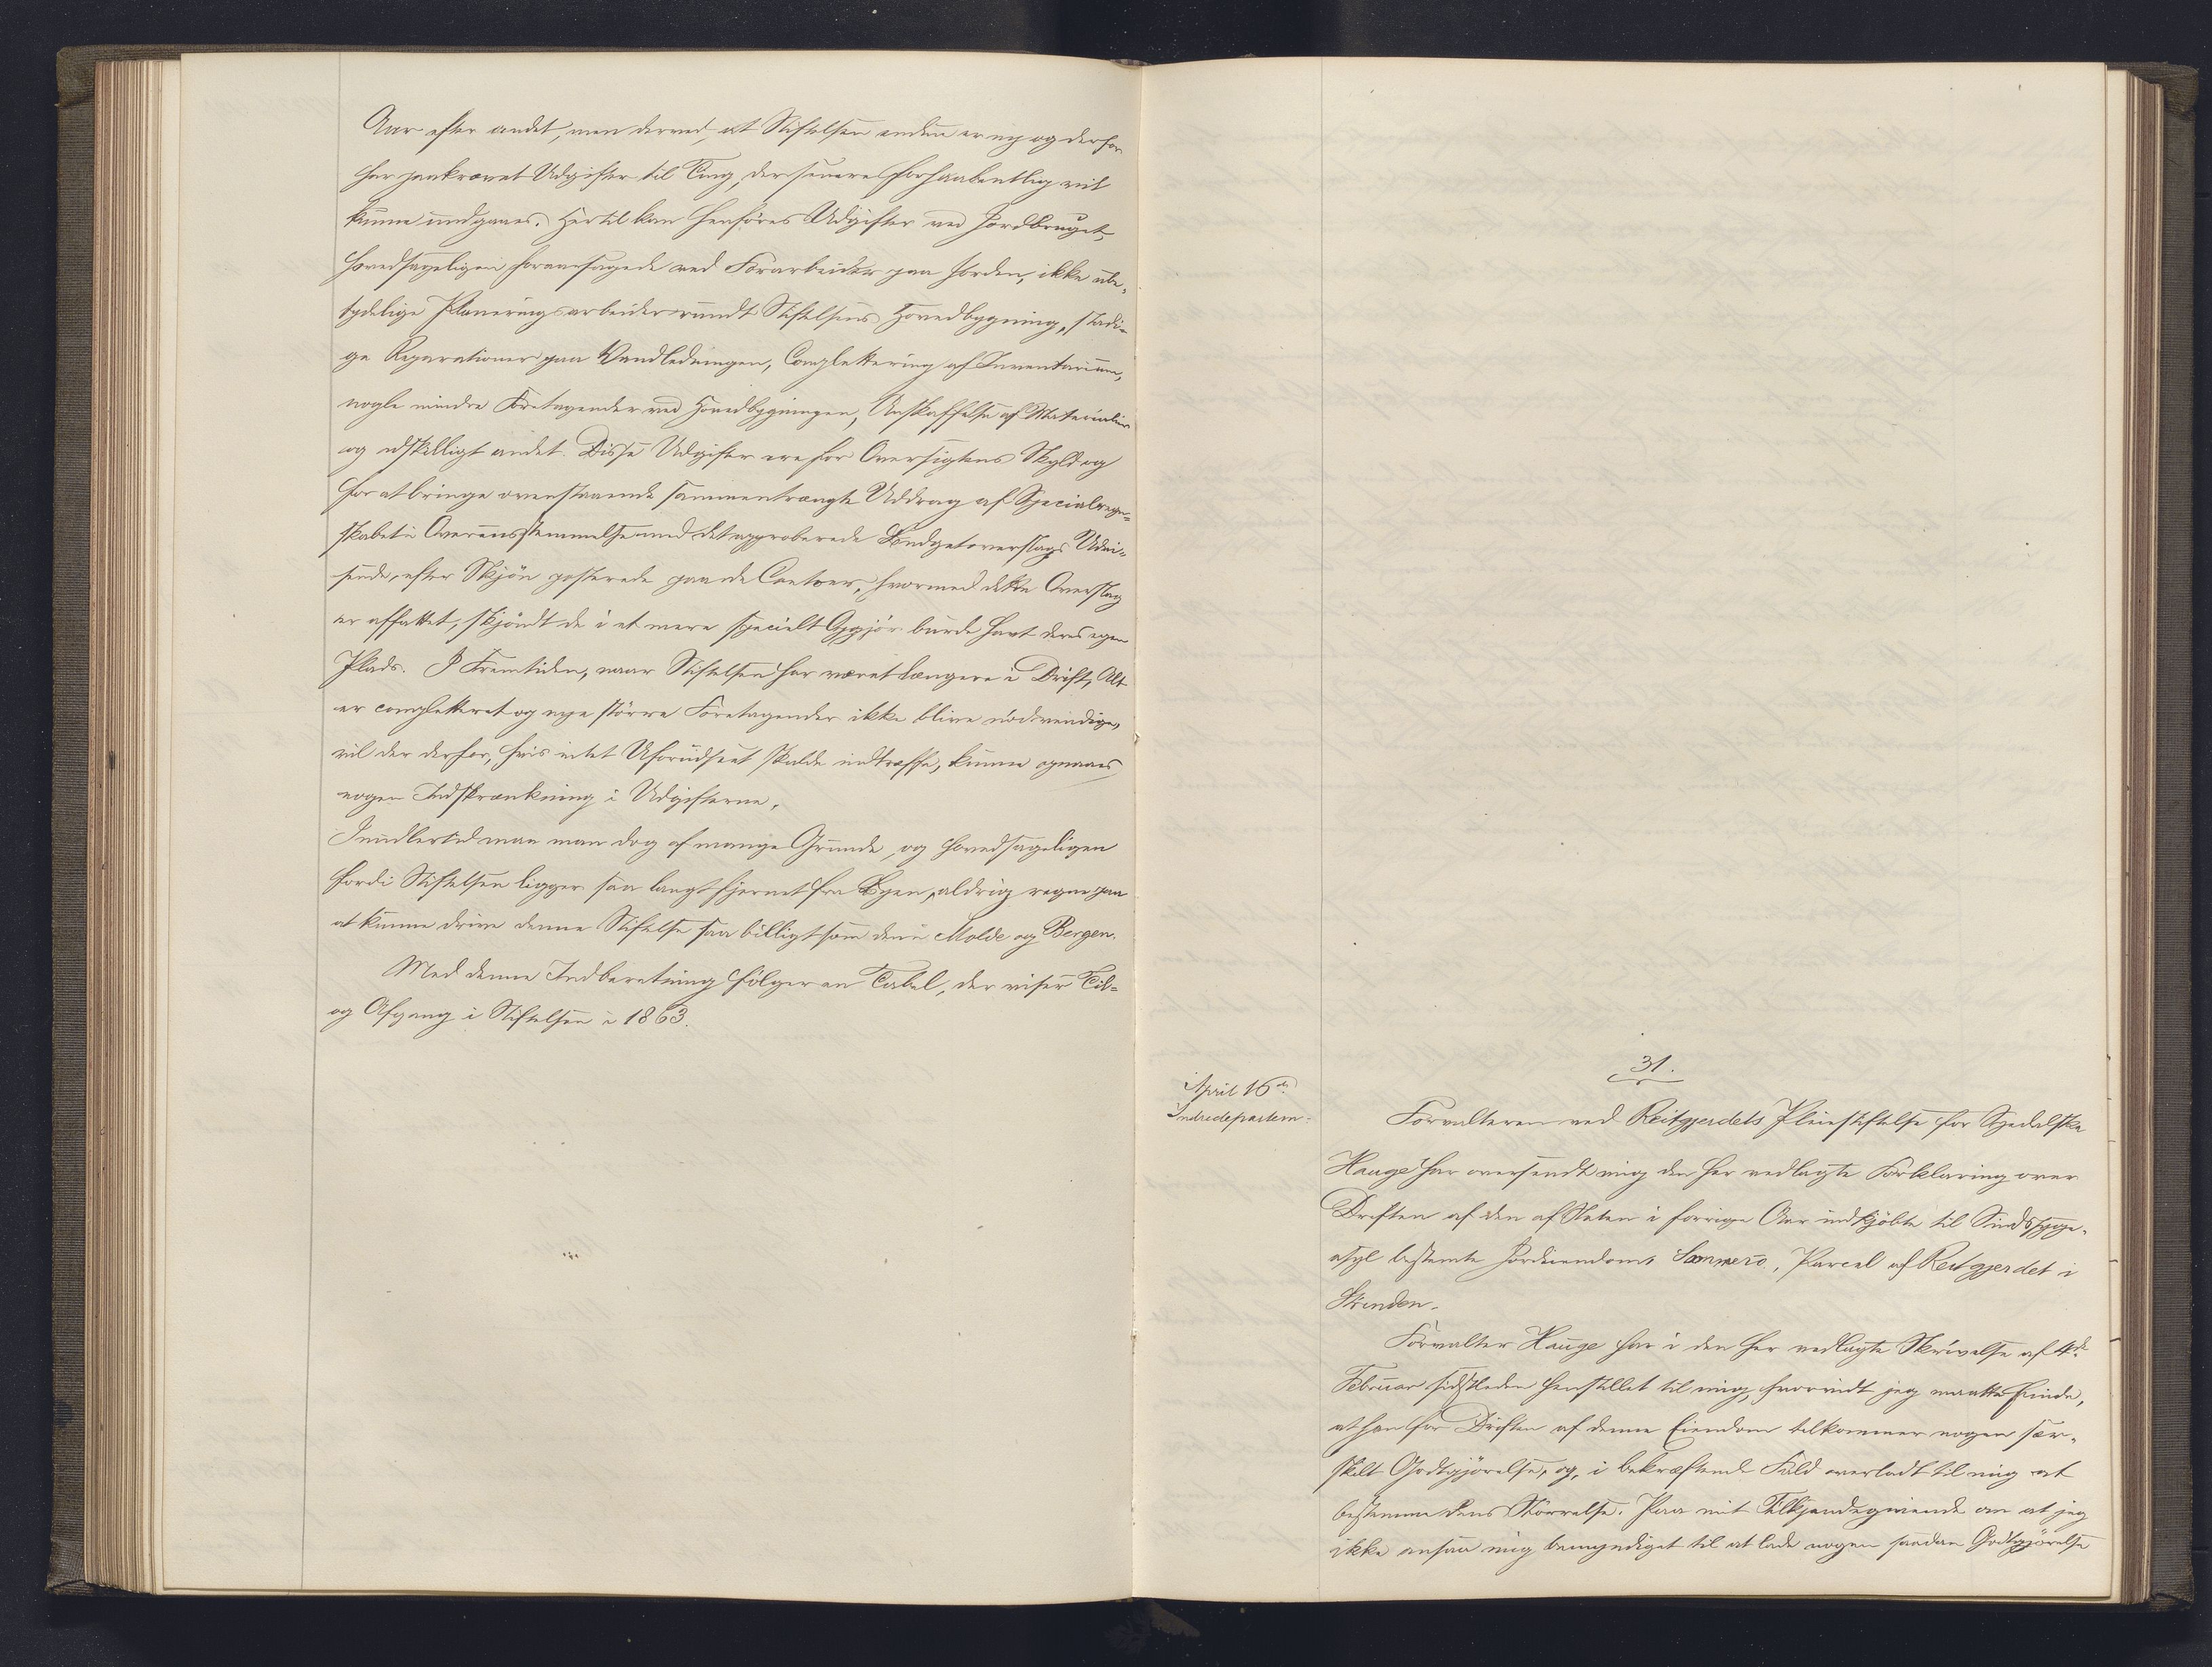 Aar efter andet, men derved, at Stiftelsen endnu er ny og derfor
har paakrævet Udgifter til Ting, der senere forhaabentlig vil
kunne undgaaes. Hertil kan henføres Udgifter ved Jordbruget,
hovedsageligen foraarsagede ved Forarbeider paa Jorden, ikke ube-
tydelige Planeringsarbeider rundt Stiftelsens Hovedbygning, stadi-
ge Reparationer paa Vandledningen, Complettering af Inventarium,
nogle mindre Foretagender ved Hovedbygningen, Anskaffelse af Materialier
og adskilligt andet. Disse Udgifter ere for Oversigtens Skyld og
for at bringe ovenstaaende sammentrængte Uddrag af Specialregn-
skabet i Overensstemmelse med det approberede Budgetoverslags Udvi-
sende, efter Skjøn posterede paa de Contoer, hvormed dette Overslag
er affattet, skjøndt de i et mere specielt Opgjør burde havt deres egen
Plads. I Fremtiden, naar Stiftelsen har været længere i Drift, Alt
er completteret og nye større Foretagender ikke blive nødvendige,
vil der derfor, hvis intet Uforudseet skulde indtræffe, kunne opnaaes
nogen Indskrænkning i Udgifterne.
Imidlertid maa man dog af mange Grunde, og hovedsageligen
fordi Stiftelsen ligger saa langt fjernet fra Byen, aldrig regne paa
at kunne drive denne Stiftelse saa billigt som den i Molde og Bergen.
Med denne Indberetning følger en Tabel, der viser Til-
og Afgang i Stiftelsen i 1863.
31.
April 16de
Indredepartem:
Forvalteren ved Reitgjerdets Pleiestiftelse for Spedalske
Hauge har oversendt mig den her vedlagte Forklaring over
Driften af den af Staten i forrige Aar indkjøbte til Sindssyge-
asyl bestemte Jordeiendom Sommero, Parcel af Reitgjerdet i
Strinden.
Forvalter Hauge har i den her vedlagte Skrivelse af 4de
Februar sidstleden henstillet til mig, hvorvidt jeg maatte finde,
at han for Driften af denne Eiendom tilkommer nogen sær-
skilt Godtgjørelse, og, i bekræftende Fald overladt til mig at
bestemme dens Størrelse. Paa mit Tilkjendegivende om at jeg
ikke ansaa mig bemyndiget til at lade nogen saadan Godtgjørelse